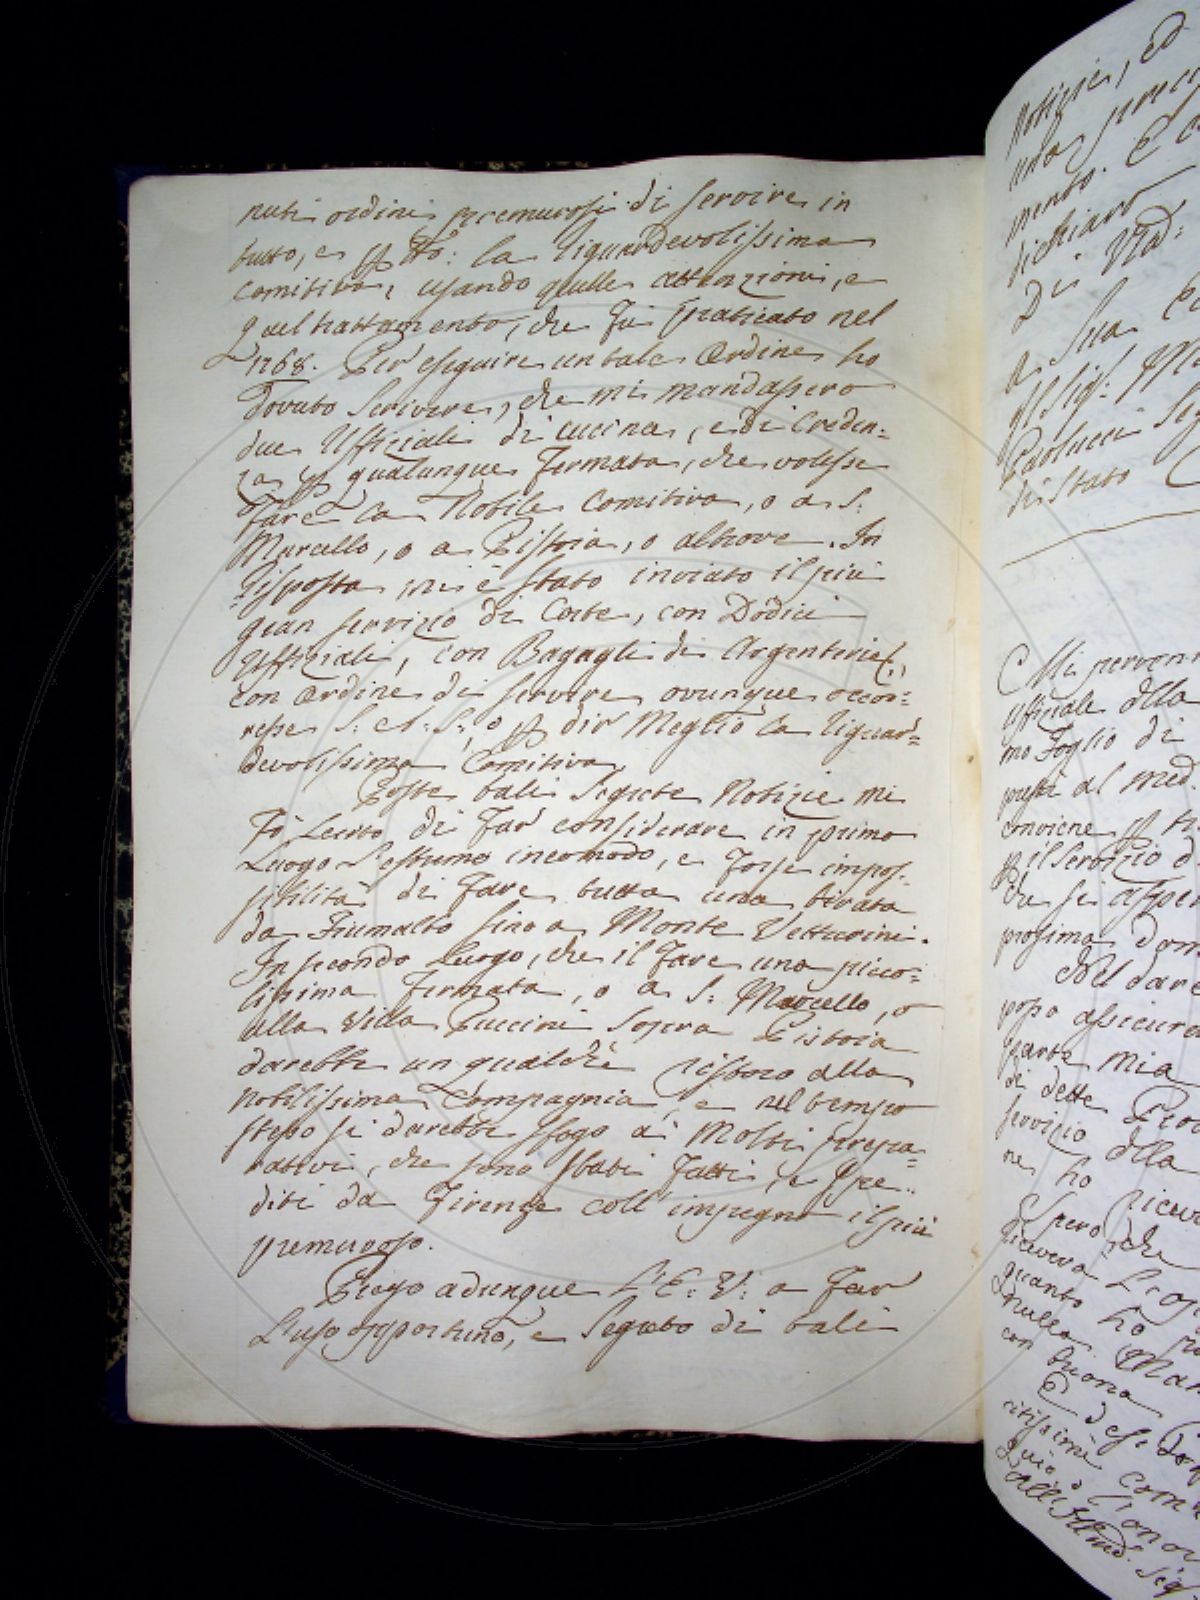 nuti ordini premurosi di servire in
tutto, e p tto: la riguardevolissima
comitiva, usando quelle attenzioni, e
quel trattamento, che fu praticato nel
1768. Per eseguire un tale Ordine ho
dovuto scrivere, che mi mandassero
due Uffiziali di cucina, e di Creden=
za p qualunque fermata, che volesse
fare la Nobile Comitiva, o a S:
Marcello, o a Pistoia, o altrove. In
risposta mi è stato inviato il più
gran servizio di Corte, con Dodici
Uffiziali, con Bagagli di Argenterie,
con Ordine di servire ovunque occor=
resse S: A: S:, o p dir Meglio la riguar=
devolissima Comitiva.
Poste tali Segrete Notizie mi
fò Lecito di far considerare in primo
Luogo L'estremo incomodo, e forse impos=
sibilità di fare tutta una tirata
da Fiumalbo sino a Monte Vetturini.
In secondo Luogo, che il fare una picco=
lissima fermata, o a S: Marcello, o
alla Villa Puccini sopra Pistoia
darebbe un qualche ristoro alla
nobilissima Compagnia, e nel tempo
stesso si darebbe sfogo a' Molti prepa=
rativi, che sono stati fatti, e spe=
diti da Firenze coll'impegno il più
premuroso.
Prego adunque L'E: V: a far
L'uso opportuno, e segreto di tali
notizie, ed
una
mento. E
dichiaro
Di Vtra:
a Sua
Il Sig: 
Paolucci
di Stato
Mi perven
Uffiziale dlla
mo Foglio di
al med.
conviene p
p il Servizio d
prossima dom
Nel dare
posso assicura
parte mia
di dette
servizio dlla
ne ho ricev
Spero che
riceverà
quanto ho
nulla Man
con buona
E
com